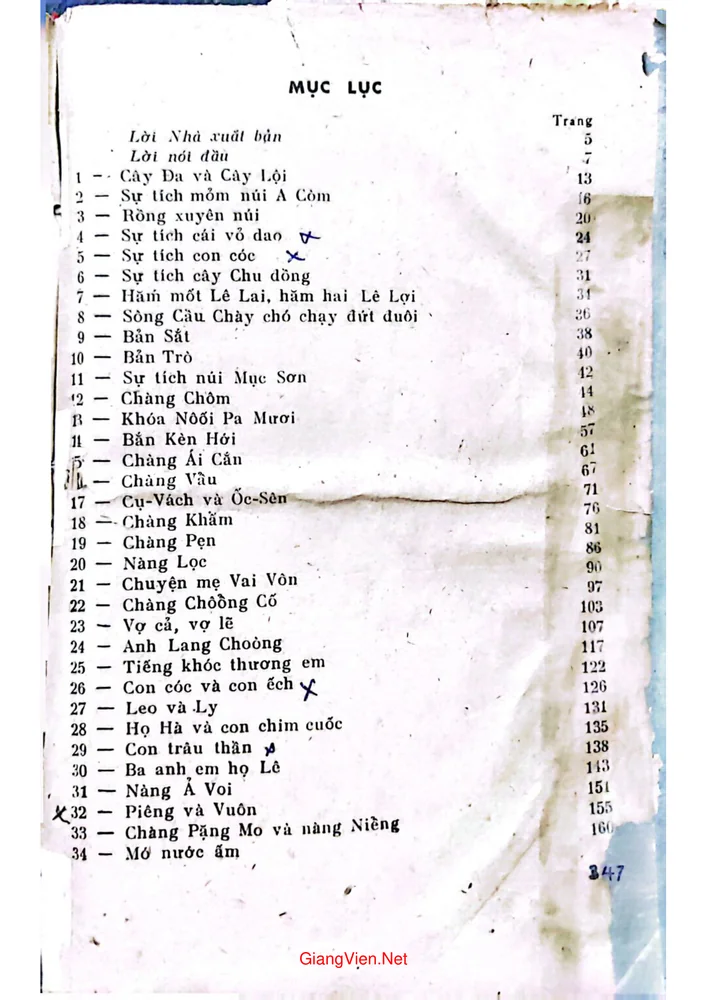 MỤC LỤC
Trang
Lời Nhà xuất bản 5
Lời nói đầu 7
1 — Cây Đa và Cây Lội 13
2 — Sự tích mỏm núi A Còm 16
3 — Rồng xuyên núi 20
4 — Sự tích cái vỏ dao 24
5 — Sự tích con cóc 27
6 — Sự tích cây Chu đồng 31
7 — Hăm mốt Lê Lai, hăm hai Lê Lợi 34
8 — Sông Cầu Chày chó chạy đứt đuôi 36
9 — Bản Sắt 38
10 — Bản Trò 40
11 — Sự tích núi Mục Sơn 42
12 — Chàng Chôm 44
13 — Khóa Nôối Pa Mươi 48
14 — Bắn Kèn Hới 57
5 — Chàng Ái Cắn 61
— Chàng Vầu 67
17 — Cụ-Vách và Ốc-Sên 71
18 — Chàng Khằm 76
19 — Chàng Pẹn 81
20 — Nàng Lọc 86
21 — Chuyện mẹ Vai Vôn 90
22 — Chàng Chôồng Cố 97
23 — Vợ cả, vợ lẽ 103
24 — Anh Lang Choòng 107
25 — Tiếng khóc thương em 117
26 — Con cóc và con ếch 122
27 — Leo và Ly 126
28 — Họ Hà và con chim cuốc 131
29 — Con trâu thần 135
30 — Ba anh em họ Lê 138
31 — Nàng Ả Voi 143
32 — Piêng và Vuôn 151
33 — Chàng Pặng Mo và nàng Niềng 155
34 — Mó nước ấm 160
347
GiangVien.Net